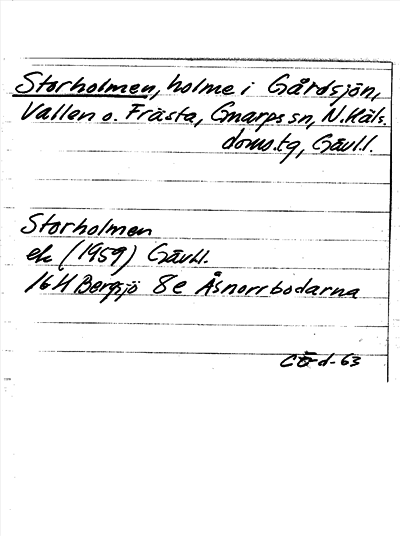 Storholmen, holme i Gårdsjön,
Vallen o. Frästa, Gnarps sn, N. Häls.
doms.tg, Gävl.l.
Storholmen
ek (1959) Gävl.l.
16H Bergsjö 8e Åsnorrbodarna